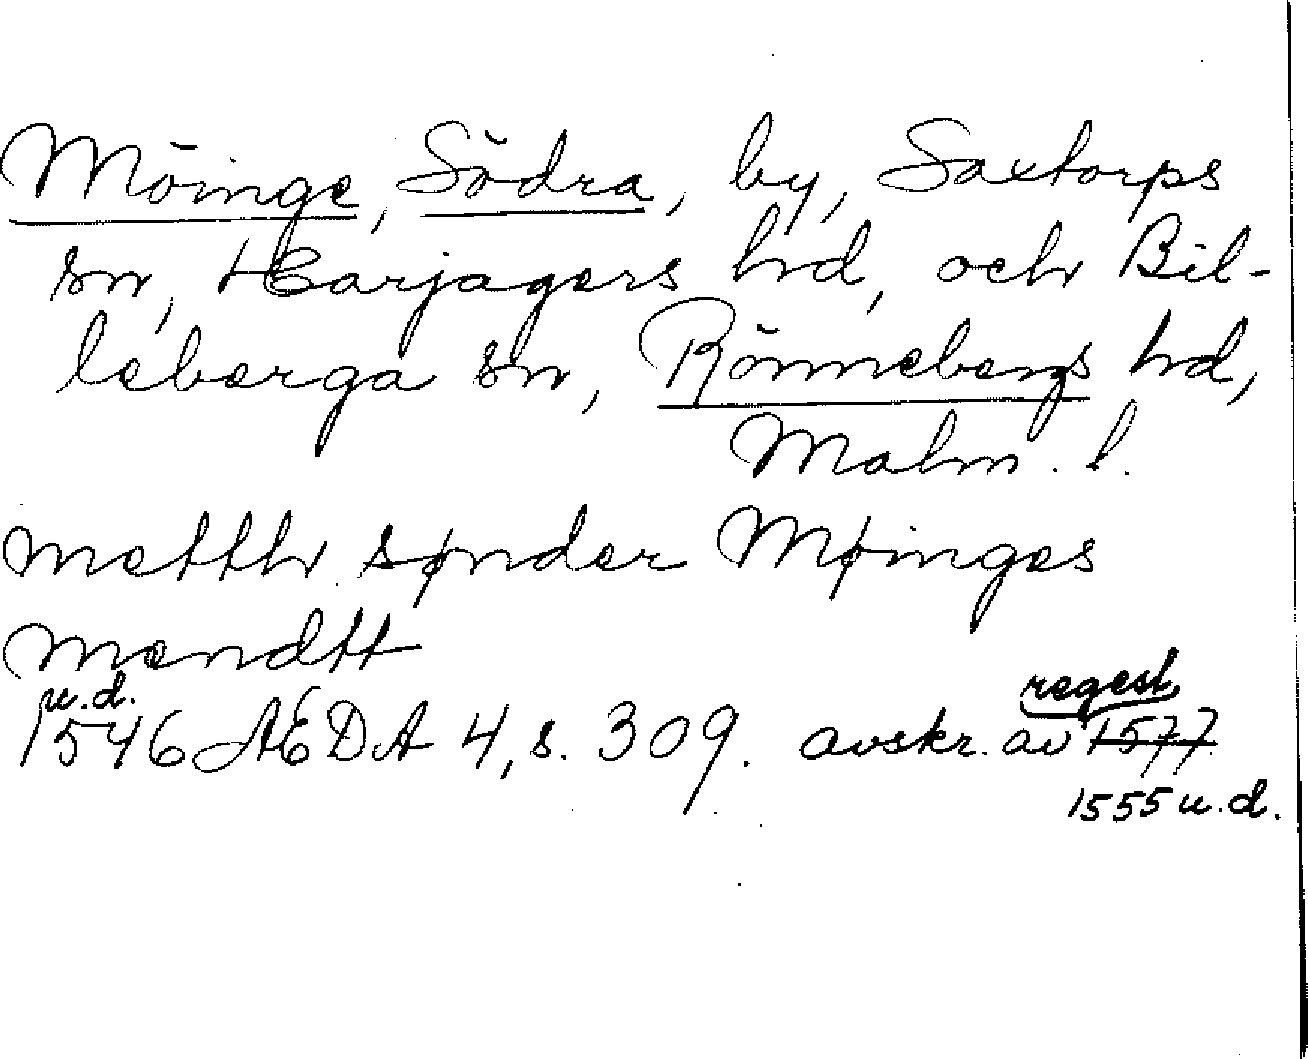 Möinge, Södra, by, Saxtorps
sn, Harjagers hd, och Bil-
leberga sn, Rönnebergs hd,
Malm. l.
metth sønder Møinges
mendtt
u.d. regest
1546 ÆDA 4, s. 309. avskr. av 1577
1555 u.d.